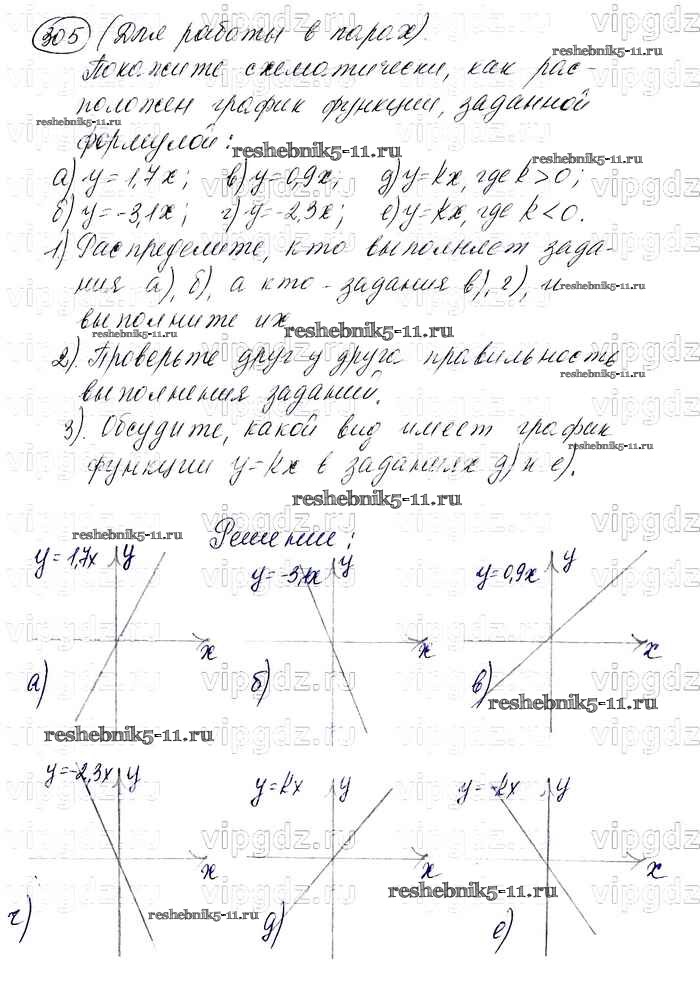 305 (Для работы в парах).
Покажите схематически, как рас-
положен график функции, заданной
формулой:
а) y=1,7x; в) y=0,9x; д) y=kx, где k>0;
б) y=-3,1x; г) y=-2,3x; е) y=kx, где k<0.
1) Распределите, кто выполняет зада-
ния а), б), а кто - задания в), г), и
выполните их
2). Проверьте друг у друга правильность
выполнения заданий.
3). Обсудите, какой вид имеет график
функции y=kx в заданиях д) и е).
Решение:
y=1,7x y x а)
y=-3,1x y x б)
y=0,9x y x в)
y=-2,3x y x г)
y=kx y x д)
y=-kx y x е)
reshebnik5-11.ru
vipgdz.ru